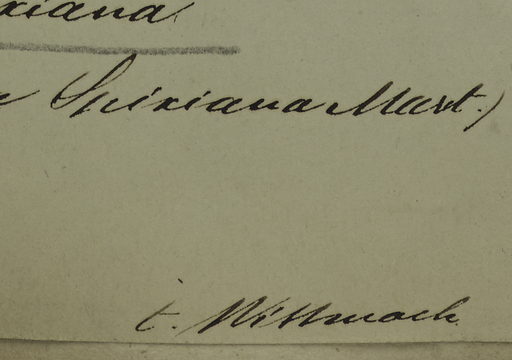 xiana
Spixiana Mart.)
t. Wittmack